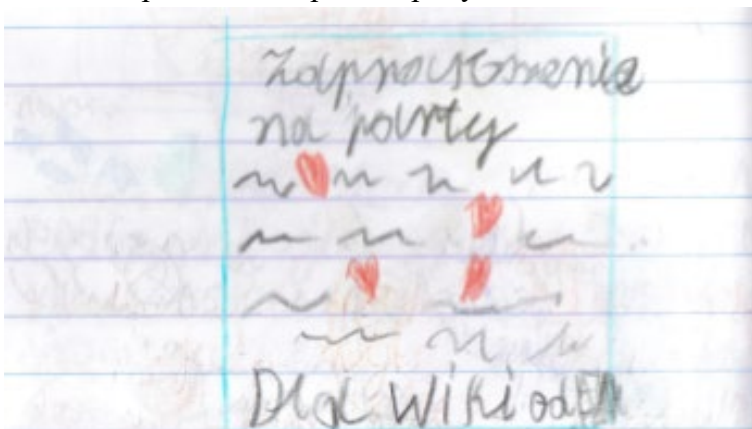 Zaproszenie
na party
Dla Wiki od